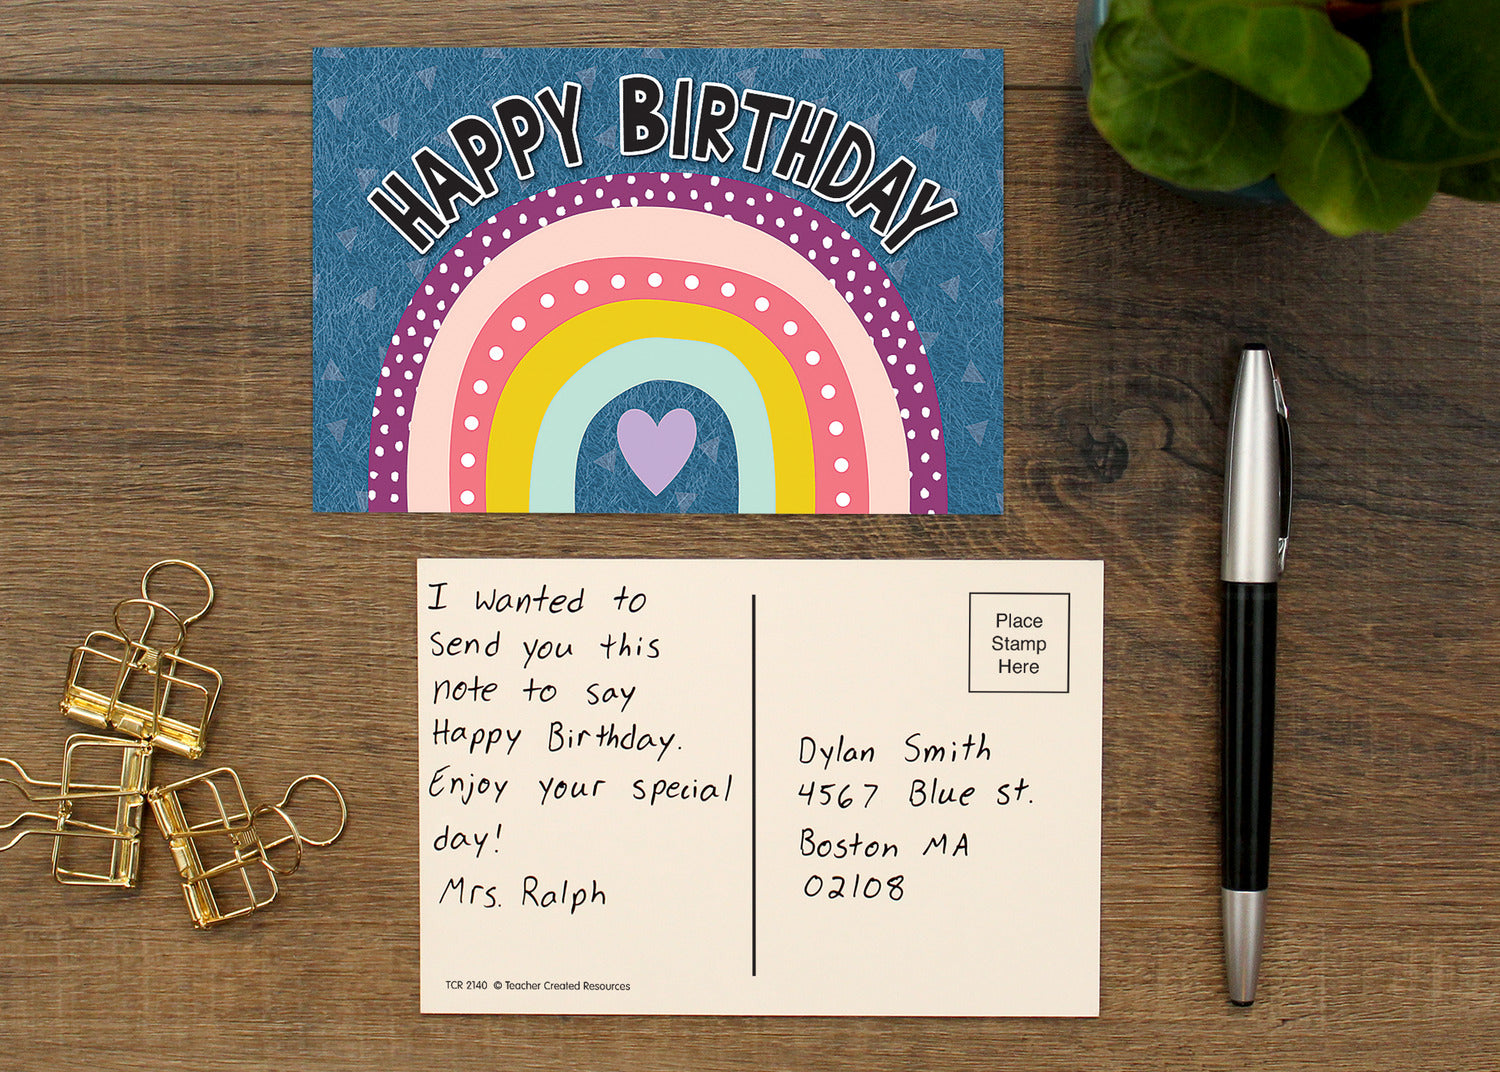 HAPPY BIRTHDAY
I wanted to
Send you this
note to say
Happy Birthday.
Enjoy your special
day!
Mrs. Ralph
TCR 2140 © Teacher Created Resources
Place
Stamp
Here
Dylan Smith
4567 Blue st.
Boston MA
02108